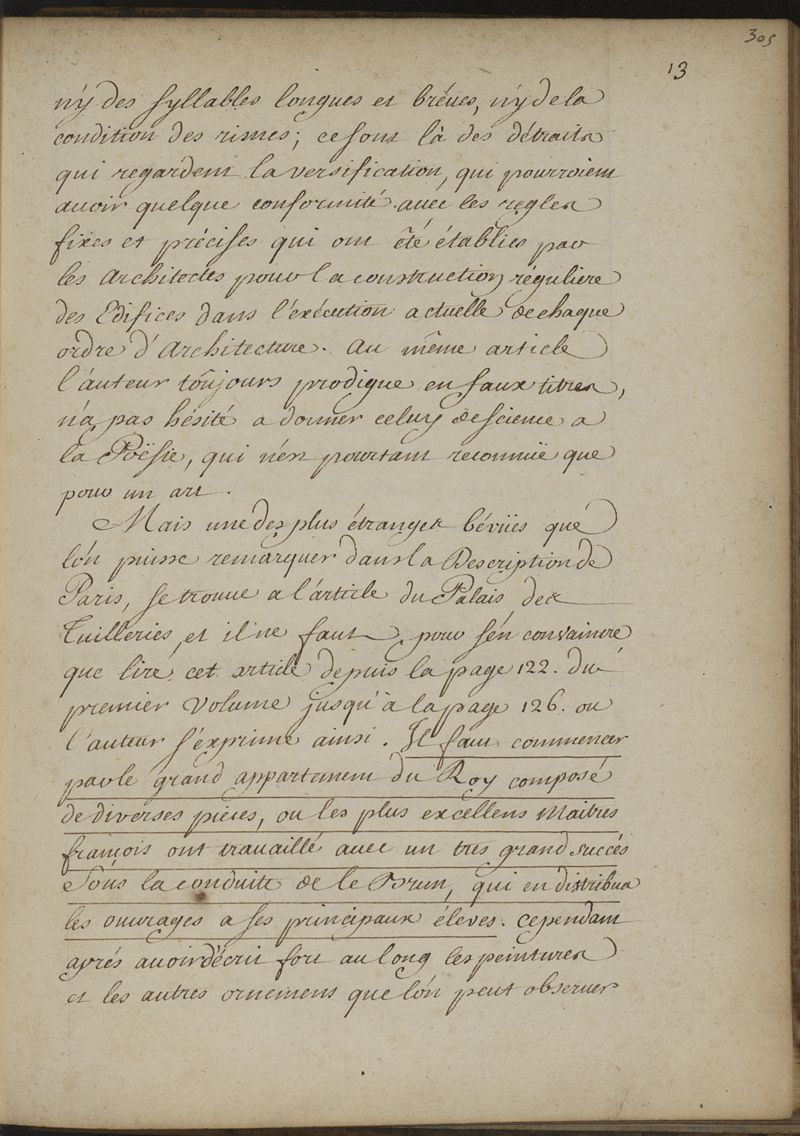 305
13
n'y des syllables longues et bréues, n'y de la
condition des rimes; ce sont là des détrails
qui regardent la versification, qui pourroient
auoir quelque conformité auec les regles
fixes et précises qui ont êté établies par
les Architectes pour la construction réguliere
des Edifices dans l'exécution actuelle de chaque
ordre d'Architecture. au même article
l'auteur toûjours prodigue en faux titres,
n'a pas hésité a donner celuy de science a
la Poësie, qui n'est pourtant reconnuë que
pour un art.
Mais une des plus étranges béviies que
l'on puisse remarquer dans la Description de
Paris, se trouue a l'article du Palais des
Tuilleries, et il ne faut, pour s'en convaincre
que lire cet article depuis la page 122. du
premier Volume jusqu'à la page 126. ou
l'auteur s'exprime ainsi. Il faut commencer
par le grand appartement du Roy composé
de diverses pieces, ou les plus excellens Maitres
françois ont trauaillé auec un tres grand succés
Sous la conduite de le Brun, qui en distribua
les ouurages a ses principaux éleves. Cependant
aprés auoir décrit fort au long les peintures
et les autres ornemens que l'on peut obseruer